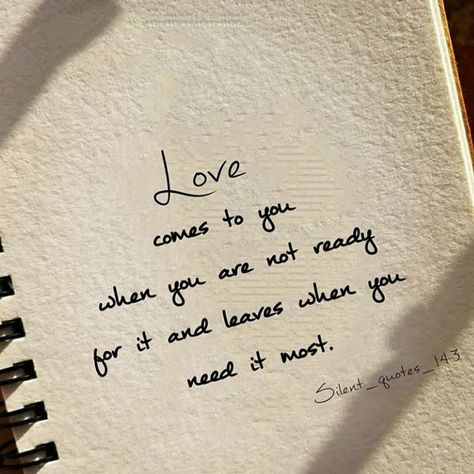 Love
comes to you
when you are not ready
for it and leaves when you
need it most.
Silent_quotes_143